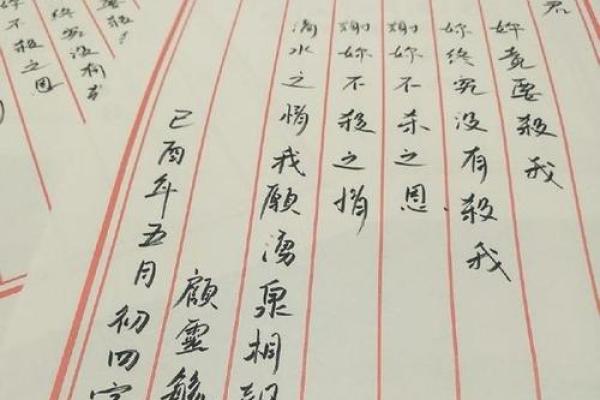 君
妳竟要殺我
妳終究沒有殺我
謝妳不杀之恩
謝妳不殺之情
滴水之情我願湧泉相報
顧靈毓
己酉年五月初四字
終究沒有
妳不殺之恩